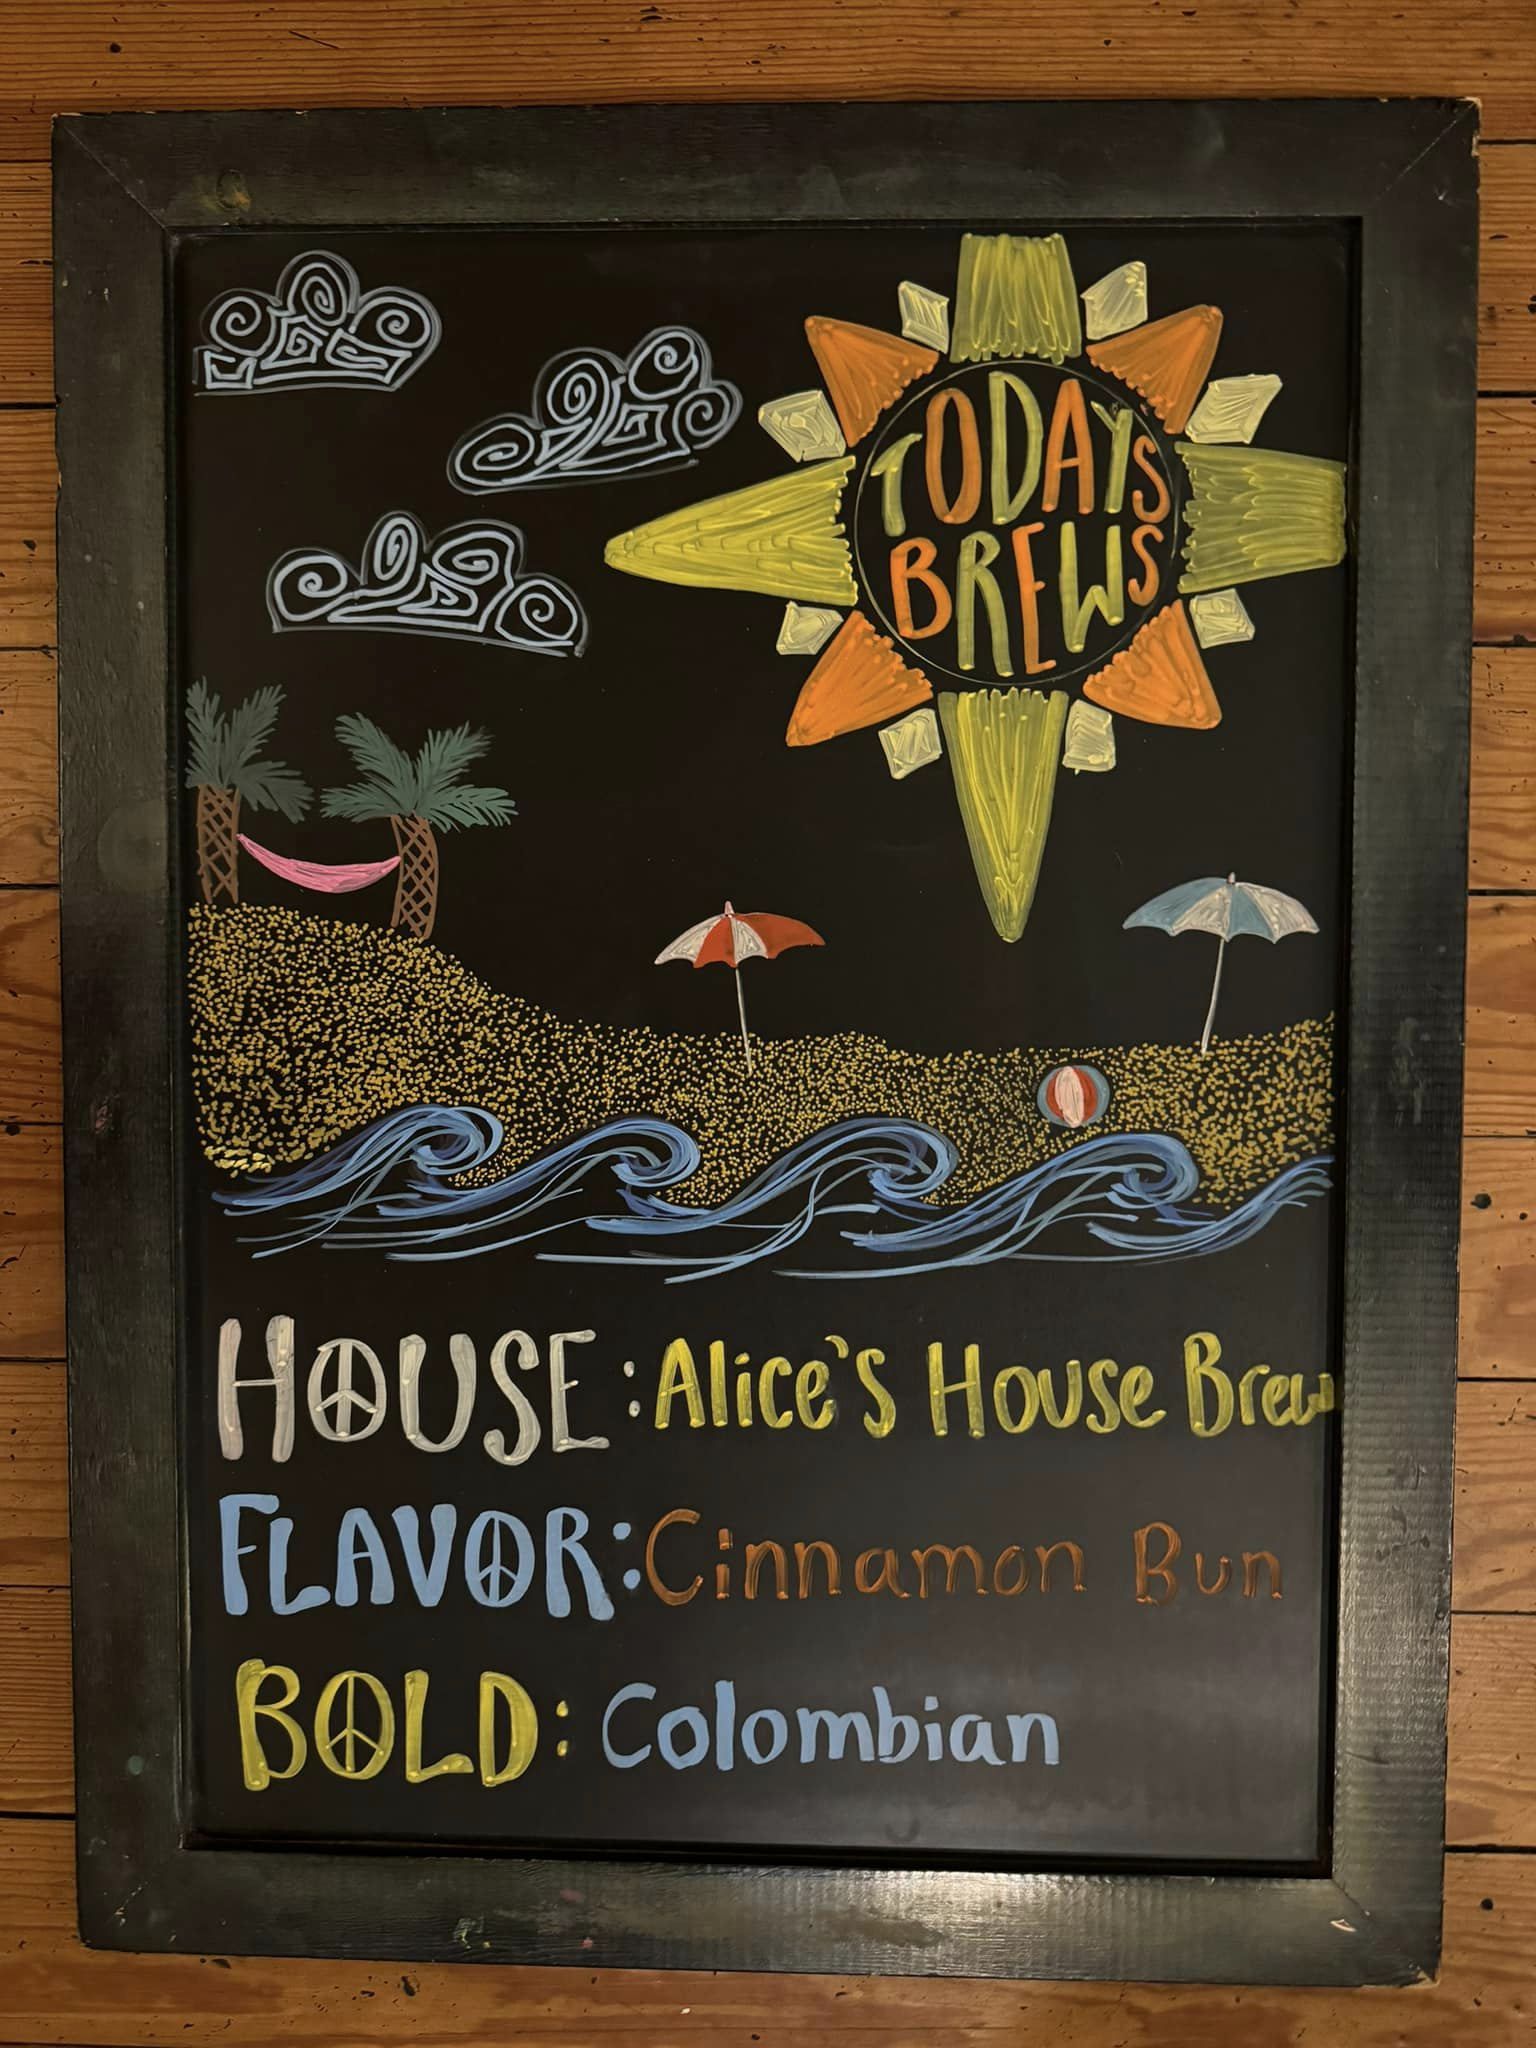 TODAYS
BREWS
HOUSE: Alice's House Brew
FLAVOR: Cinnamon Bun
BOLD: Colombian